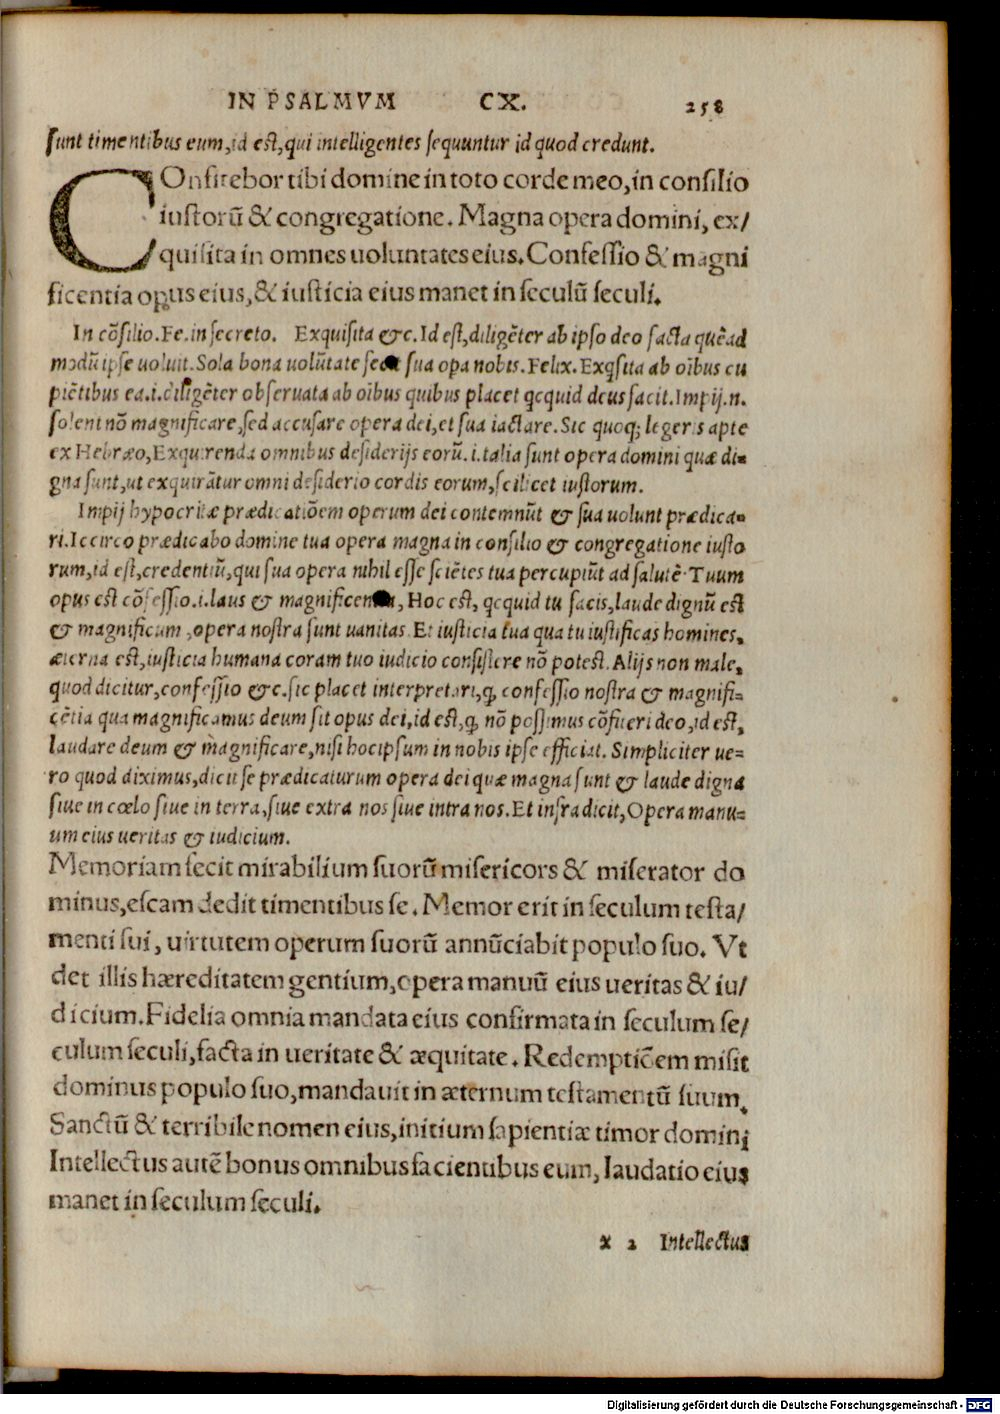 IN PSALMVM CX. 258
sunt timentibus eum,id est,qui intelligentes sequuntur id quod credunt.
COnfitebor tibi domine in toto corde meo,in consilio
iustorũ & congregatione. Magna opera domini, ex/
quisita in omnes uoluntates eius.Confessio & magni
ficentia opus eius,& iusticia eius manet in seculũ seculi.
In cõsilio.Fe.in secreto. Exquisita &c. Id est,diligẽter ab ipso deo facta quẽad
modũ ipse uoluit.Sola bona uolũtate sua opa nobis. Felix. Exqsita ab oĩbus cu
piẽtibus ea.i.diligẽter obseruata ab oĩbus quibus placet qcquid deus facit.Impij.n.
solent nõ magnificare,sed accusare opera dei,et sua iactare. Sic quoq; legeris apte
ex Hebræo,Exquirenda omnibus desiderijs eorũ.i.talia sunt opera domini quæ di=
gna sunt,ut exquirãtur omni desiderio cordis eorum,scilicet iustorum.
Impij hypocritæ prædicatiõem operum dei contemnũt & sua uolunt prædica=
ri.Iccirco prædicabo domine tua opera magna in consilio & congregatione iusto
rum,id est,credentiũ,qui sua opera nihil esse sciẽtes tua percupiũt ad salutẽ. Tuum
opus est cõfessio.i.laus & magnificentia, Hoc est, qcquid tu facis,laude dignũ est
& magnificum ,opera nostra sunt uanitas. Et iusticia tua qua tu iustificas homines,
æterna est,iusticia humana coram tuo iudicio consistere nõ potest. Alijs non male,
quod dicitur,confessio &c.sic placet interpretari,q, confessio nostra & magnifi=
cẽtia qua magnificamus deum sit opus dei,id est,q, nõ possimus cõfiteri deo,id est,
laudare deum & magnificare,nisi hoc ipsum in nobis ipse efficiat. Simpliciter ue=
ro quod diximus,dicit se prædicaturum opera dei quæ magna sunt & laude digna
siue in cœlo siue in terra,siue extra nos siue intra nos. Et infra dicit,Opera manu=
um eius ueritas & iudicium.
Memoriam fecit mirabilium suorũ misericors & miserator do
minus,escam dedit timentibus se. Memor erit in seculum testa/
menti sui, uirtutem operum suorũ annũciabit populo suo. Vt
det illis hæreditatem gentium,opera manuũ eius ueritas & iu/
dicium.Fidelia omnia mandata eius confirmata in seculum se/
culum seculi,facta in ueritate & æquitate. Redemptiõem misit
dominus populo suo,mandauit in æternum testamentũ suum.
Sanctũ & terribile nomen eius,initium sapientiæ timor domini
Intellectus autẽ bonus omnibus facientibus eum, laudatio eius
manet in seculum seculi.
x 2 Intellectus
Digitalisierung gefördert durch die Deutsche Forschungsgemeinschaft - DFG